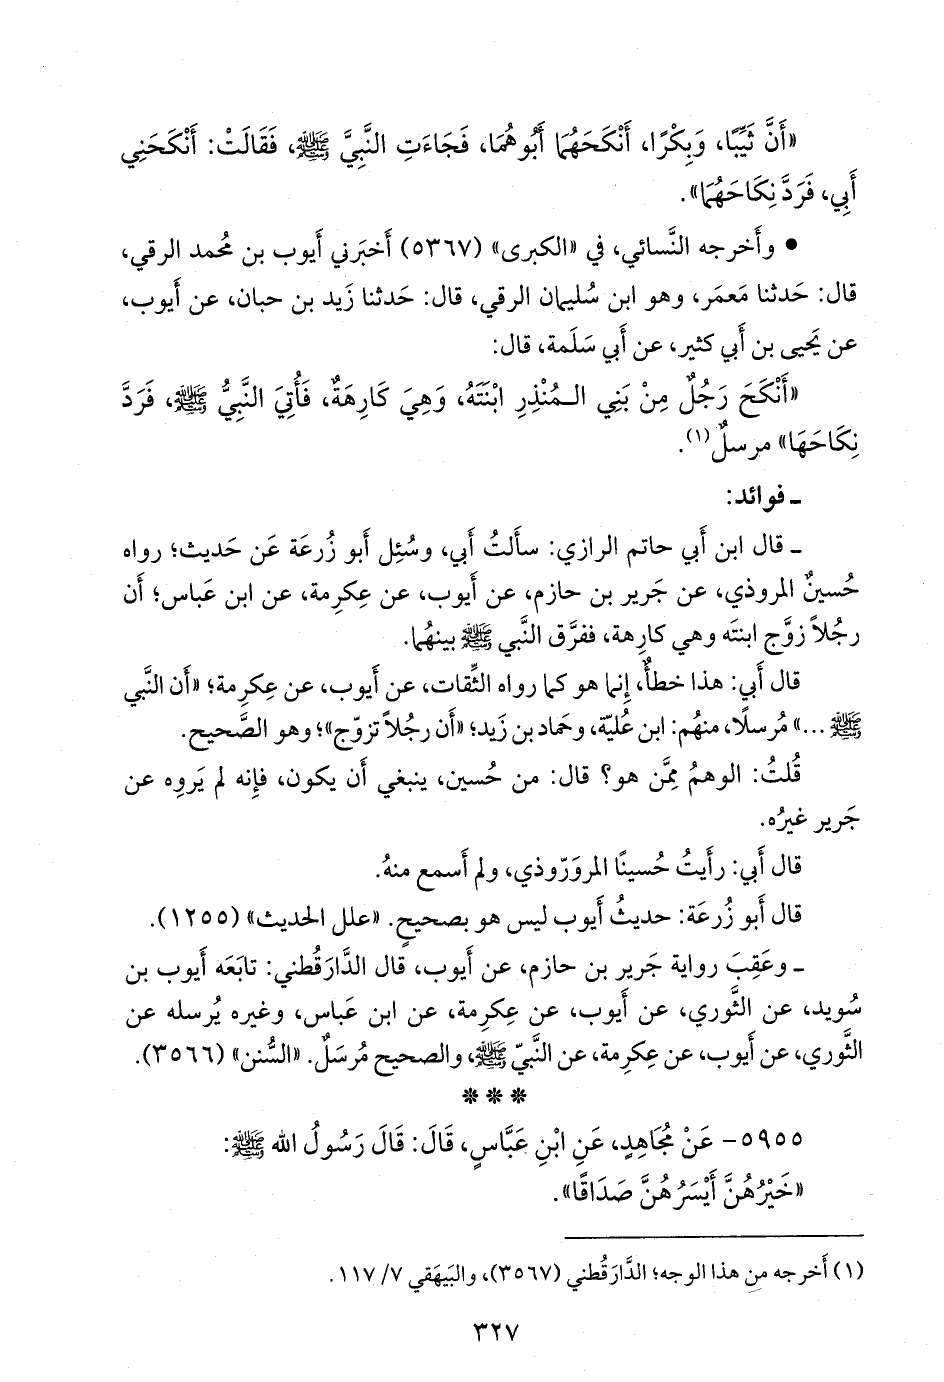 «أَنَّ ثَيِّبًا، وَبِكْرًا، أَنْكَحَهُمَا أَبُوهُمَا، فَجَاءَتِ النَّبِيَّ ﷺ، فَقَالَتْ: أَنْكَحَنِي
أَبِي، فَرَدَّ نِكَاحَهُمَا».
• وأَخرجه النَّسائي، في «الكبرى» (٥٣٦٧) أَخبَرني أَيوب بن مُحمد الرقي،
قال: حَدثنا مَعمَر، وهو ابن سُليمان الرقي، قال: حَدثنا زَيد بن حبان، عن أَيوب،
عن يَحيى بن أَبي كثير، عن أَبي سَلَمة، قال:
«أَنْكَحَ رَجُلٌ مِنْ بَنِي الـمُنْذِرِ ابْنَتَهُ، وَهِيَ كَارِهَةٌ، فَأُتِيَ النَّبِيُّ ﷺ، فَرَدَّ
نِكَاحَهَا» مرسلٌ(١).
ـ فوائد:
ـ قال ابن أَبي حاتم الرازي: سأَلتُ أَبي، وسُئِل أَبو زُرعَة عَن حَديث؛ رواه
حُسينٌ المروذي، عن جَرير بن حازم، عن أَيوب، عن عِكرِمة، عن ابن عَباس؛ أَن
رجُلاً زوَّج ابنتَه وهي كارِهة، ففرَّق النَّبي ﷺ بينهُما.
قال أَبي: هذا خطأٌ، إِنما هو كما رواه الثِّقات، عن أَيوب، عن عِكرِمة؛ «أَن النَّبي
ﷺ ...» مُرسلًا، منهُم: ابن عُليّة، وحَماد بن زَيد؛ «أَن رجُلاً تزوّج»؛ وهو الصَّحيح.
قُلتُ: الوهمُ مِمَّن هو؟ قال: من حُسين، ينبغي أَن يكون، فإِنه لم يَروِه عن
جَرير غيرُه.
قال أَبي: رأَيتُ حُسينًا المروَرّوذي، ولم أَسمع منهُ.
قال أَبو زُرعَة: حديثُ أَيوب ليس هو بصحيحٍ. «علل الحديث» (١٢٥٥).
ـ وعَقِبَ رواية جَرير بن حازم، عن أَيوب، قال الدَّارَقُطني: تابَعَه أَيوب بن
سُويد، عن الثَّوري، عن أَيوب، عن عِكرِمة، عن ابن عَباس، وغيره يُرسله عن
الثَّوري، عن أَيوب، عن عِكرِمة، عن النَّبيّ ﷺ، والصحيح مُرسَلٌ. «السُّنن» (٣٥٦٦).
* * *
٥٩٥٥- عَنْ مُجَاهِدٍ، عَنِ ابْنِ عَبَّاسٍ، قَالَ: قَالَ رَسُولُ الله ﷺ:
«خَيْرُهُنَّ أَيْسَرُهُنَّ صَدَاقًا».
(١) أَخرجه مِن هذا الوجه؛ الدَّارَقُطني (٣٥٦٧)، والبَيهَقي ٧/ ١١٧.
٣٢٧